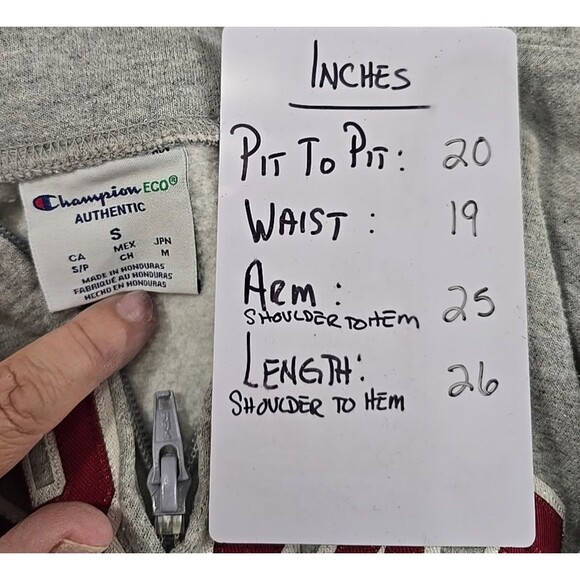 INCHES
PIT TO PIT: 20
WAIST: 19
ARM: 25
SHOULDER TO HEM
LENGTH: 26
SHOULDER TO HEM
Champion ECO®
AUTHENTIC
S
CA MEX JPN
S/P CH M
MADE IN HONDURAS
FABRIQUÉ AU HONDURAS
HECHO EN HONDURAS